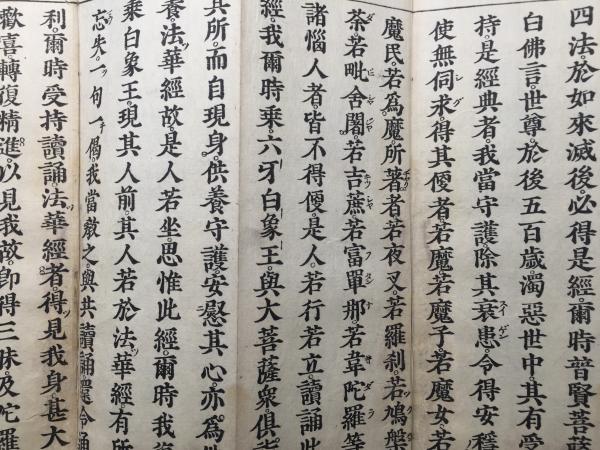 四法於如來滅後必得是經爾時普賢菩薩
白佛言世尊於後五百歲濁惡世中其有受
持是經典者我當守護除其衰患令得安穩
使無伺求得其便者若魔若魔子若魔女若
魔民若為魔所著者若夜叉若羅刹若鳩槃
荼若毗舍闍若吉蔗若富單那若韋陀羅等
諸惱人者皆不得便是人若行若立讀誦此
經我爾時乘六牙白象王與大菩薩衆俱詣
其所而自現身供養守護安慰其心亦為供
養法華經故是人若坐思惟此經爾時我復
乘白象王現其人前其人若於法華經有所
忘失一句一偈我當教之與共讀誦還令通
利爾時受持讀誦法華經者得見我身甚大
歡喜轉復精進以見我故卽得三昧及陀羅